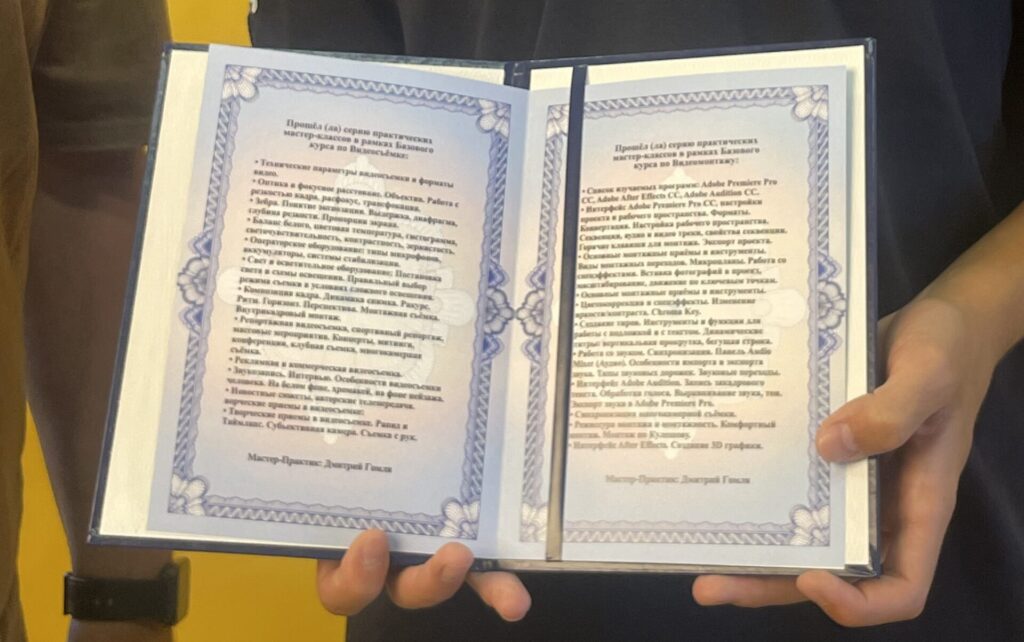 Прошёл (ла) серию практических
мастер-классов в рамках Базового
курса по Видеосъёмке:
• Технические параметры видеосъемки и форматы
видео.
• Оптика и фокусное расстояние. Объектив. Работа с
резкостью кадра, расфокус, трансфокация.
• Зебра. Понятие экспозиции. Выдержка, диафрагма,
глубина резкости. Пропорции экрана.
• Баланс белого, цветовая температура, гистограмма,
светочувствительность, контрастность, зернистость.
• Операторское оборудование: типы микрофонов,
аккумуляторы, системы стабилизации.
• Свет и осветительное оборудование: Постановка
света и схемы освещения. Правильный выбор
режима съемки в условиях сложного освещения.
• Композиция кадра. Динамика снимка. Ракурс.
Ритм. Горизонт. Перспектива. Монтажная съёмка.
Внутрикадровый монтаж.
• Репортажная видеосъемка, спортивный репортаж,
массовые мероприятия. Концерты, митинги,
конференции, клубная съемка, многокамерная
съёмка.
• Рекламная и коммерческая видеосъемка.
• Звукозапись. Интервью. Особенности видеосъемки
человека. На белом фоне, хромакей, на фоне пейзажа.
• Новостные сюжеты, авторские телепередачи.
ворческие приемы в видеосъемке:
• Творческие приемы в видеосъемке. Рапид и
Таймлапс. Субъективная камера. Съемка с рук.
Мастер-Практик: Дмитрий Гомля
Прошёл (ла) серию практических
мастер-классов в рамках Базового
курса по Видеомонтажу:
• Список изучаемых программ: Adobe Premiere Pro
CC, Adobe After Effects CC, Adobe Audition CC.
• Интерфейс Adobe Premiere Pro CC, настройки
проекта и рабочего пространства. Форматы.
Конвертация. Настройка рабочего пространства.
Секвенции, аудио и видео треки, свойства секвенции.
Горячие клавиши для монтажа. Экспорт проекта.
• Основные монтажные приёмы и инструменты.
Виды монтажных переходов. Микропланы. Работа со
спецэффектами. Вставка фотографий в проект,
масштабирование, движение по ключевым точкам.
• Основные монтажные приёмы и инструменты.
• Цветокоррекция и спецэффекты. Изменение
яркости/контраста. Chroma Key.
• Создание титров. Инструменты и функции для
работы с подложкой и с текстом. Динамические
титры: вертикальная прокрутка, бегущая строка.
• Работа со звуком. Синхронизация. Панель Audio
Mixer (Аудио). Особенности импорта и экспорта
звука. Типы звуковых дорожек. Звуковые переходы.
• Интерфейс Adobe Audition. Запись закадрового
текста. Обработка голоса. Выравнивание звука, тон.
Экспорт звука в Adobe Premiere Pro.
• Синхронизация многокамерной съёмки.
• Режиссура монтажа и монтажность. Комфортный
монтаж. Монтаж по Кулешову.
• Интерфейс After Effects. Создание 3D графики.
Мастер-Практик: Дмитрий Гомля